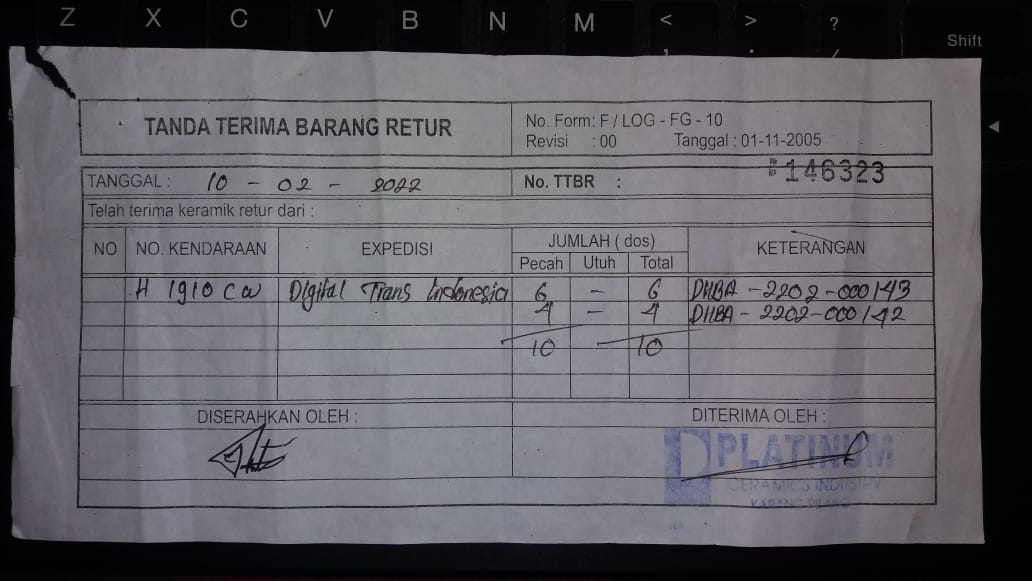 Z X C V B N M < > ?
, . / Shift
TANDA TERIMA BARANG RETUR
No. Form: F / LOG - FG - 10
Revisi : 00 Tanggal : 01-11-2005
TANGGAL : 10 - 02 - 2022 No. TTBR : No 146323
Telah terima keramik retur dari :
NO NO. KENDARAAN EXPEDISI JUMLAH ( dos) KETERANGAN
Pecah Utuh Total
H 1910 CW Digital Trans Indonesia 6 - 6 DHBA - 2202 - 000143
4 - 4 DHBA - 2202 - 000142
10 10
DISERAHKAN OLEH : DITERIMA OLEH :
PLATINUM
CERAMICS INDUSTRY
KARANG PILANG